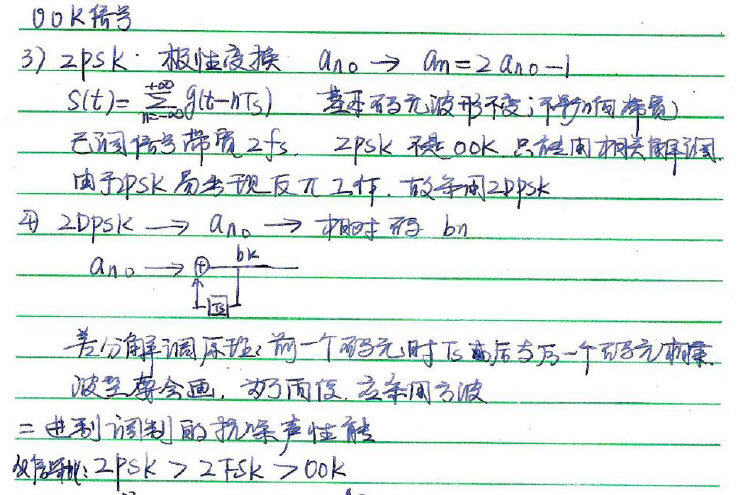 OOK信号
3) 2psk: 极性变换 an0 → an=2an0-1
S(t)=Σ g(t-nTs) 基本码元波形不变；不影响带宽)
n=-∞ +∞
已调信号带宽2fs. 2psk 不是OOK 只能用相关解调.
由于2psk易出现反π工作, 故采用2Dpsk
④ 2Dpsk → an0 → 相对码 bn
an0 → ⊕ bk
Ts
差分解调原理: 前一个码元时Ts 后与后一个码元相乘.
波型要会画, 为了简便, 应采用方波
二进制调制的抗噪声性能
2psk > 2Fsk > OOK